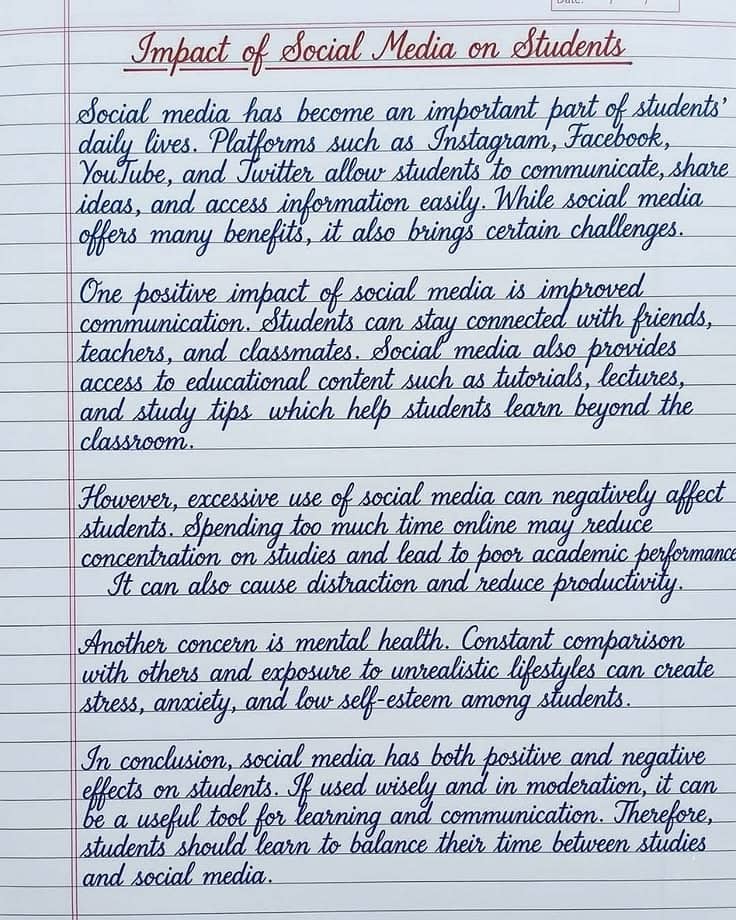 Date:
Impact of Social Media on Students
Social media has become an important part of students'
daily lives. Platforms such as Instagram, Facebook,
YouTube, and Twitter allow students to communicate, share
ideas, and access information easily. While social media
offers many benefits, it also brings certain challenges.
One positive impact of social media is improved
communication. Students can stay connected with friends,
teachers, and classmates. Social media also provides
access to educational content such as tutorials, lectures,
and study tips which help students learn beyond the
classroom.
However, excessive use of social media can negatively affect
students. Spending too much time online may reduce
concentration on studies and lead to poor academic performance
It can also cause distraction and reduce productivity.
Another concern is mental health. Constant comparison
with others and exposure to unrealistic lifestyles can create
stress, anxiety, and low self-esteem among students.
In conclusion, social media has both positive and negative
effects on students. If used wisely and in moderation, it can
be a useful tool for learning and communication. Therefore,
students should learn to balance their time between studies
and social media.